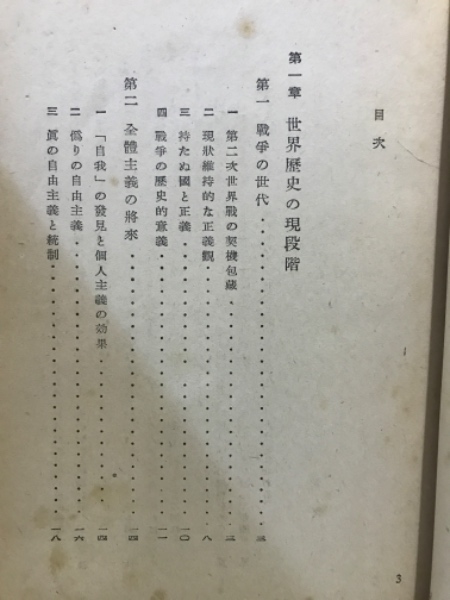 目次
第一章 世界歷史の現段階
第一 戰爭の世代・・・・・・・・・・・・・・・・・・・・三
一 第二次世界戰の契機包藏・・・・・・・・・・・・・・・三
二 現狀維持的な正義觀・・・・・・・・・・・・・・・・・八
三 持たぬ國と正義・・・・・・・・・・・・・・・・・・・一〇
四 戰爭の歷史的意義・・・・・・・・・・・・・・・・・・一一
第二 全體主義の將來・・・・・・・・・・・・・・・・・・一四
一 「自我」の發見と個人主義の効果・・・・・・・・・・・一四
二 僞りの自由主義・・・・・・・・・・・・・・・・・・・一六
三 眞の自由主義と統制・・・・・・・・・・・・・・・・・一八
3